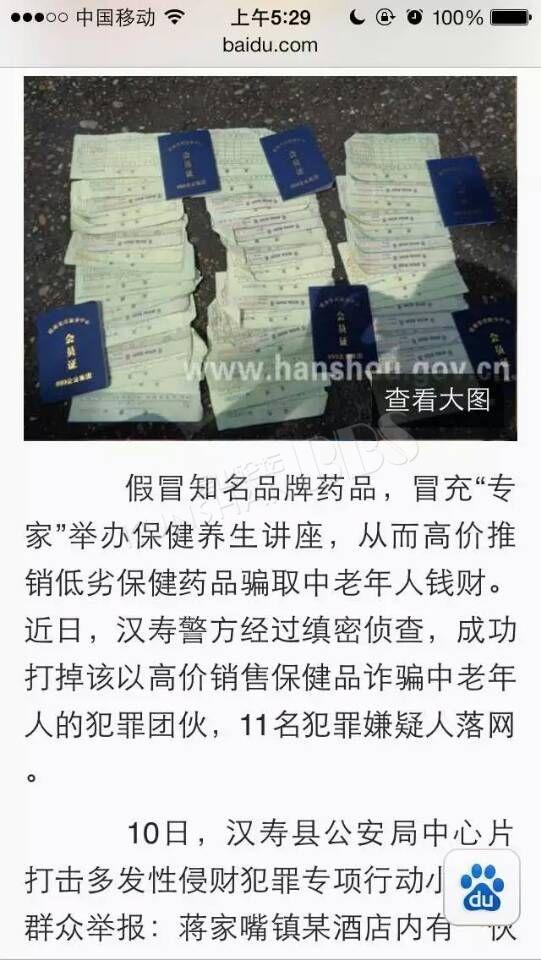 中国移动
上午5:29
100%
baidu.com
会员证
会员证
会员证
会员证
会员证
会员证
www.hanshou.gov.cn
查看大图
BBS
假冒知名品牌药品，冒充“专
家”举办保健养生讲座，从而高价推
销低劣保健药品骗取中老年人钱财。
近日，汉寿警方经过缜密侦查，成功
打掉该以高价销售保健品诈骗中老年
人的犯罪团伙，11名犯罪嫌疑人落网
。
10日，汉寿县公安局中心片
打击多发性侵财犯罪专项行动小
群众举报：蒋家嘴镇某酒店内有一伙
du